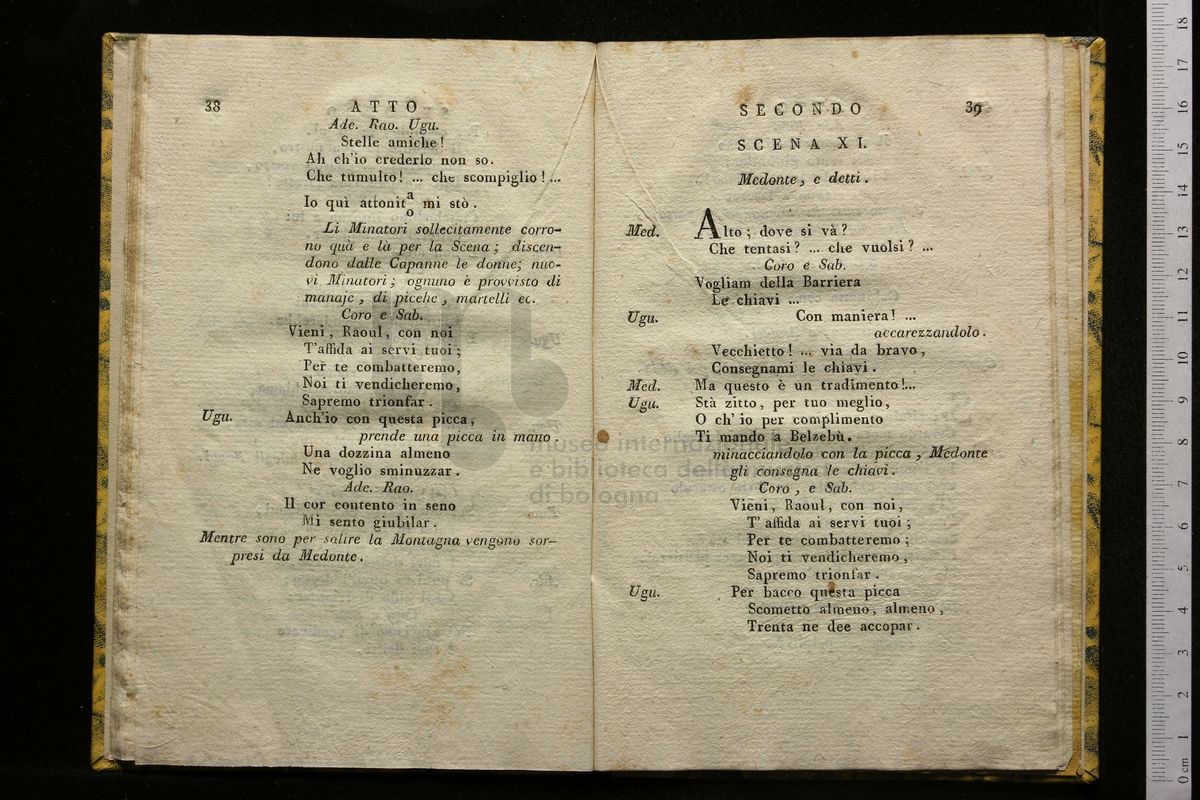 38
ATTO
Ade. Rao. Ugu.
Stelle amiche!
Ah ch'io crederlo non so.
Che tumulto! ... che scompiglio! ...
a
Io quì attonit mi stò.
o
Li Minatori sollecitamente corro-
no quà e là per la Scena; discen-
dono dalle Capanne le donne; nuo-
vi Minatori; ognuno è provvisto di
manaje, di picche, martelli ec.
Coro e Sab.
Vieni, Raoul, con noi
T'affida ai servi tuoi;
Per te combatteremo,
Noi ti vendicheremo,
Sapremo trionfar.
Ugu. Anch'io con questa picca,
prende una picca in mano.
Una dozzina almeno
Ne voglio sminuzzar.
Ade. Rao.
Il cor contento in seno
Mi sento giubilar.
Mentre sono per salire la Montagna vengono sor-
presi da Medonte.
SECONDO
39
SCENA XI.
Medonte, e detti.
Med. Alto; dove si và?
Che tentasi? ... che vuolsi? ...
Coro e Sab.
Vogliam della Barriera
Le chiavi ...
Ugu. Con maniera! ...
accarezzandolo.
Vecchietto! ... via da bravo,
Consegnami le chiavi.
Med. Ma questo è un tradimento!...
Ugu. Stà zitto, per tuo meglio,
O ch' io per complimento
Ti mando a Belzebù.
minacciandolo con la picca, Medonte
gli consegna le chiavi.
Coro, e Sab.
Vieni, Raoul, con noi,
T' affida ai servi tuoi;
Per te combatteremo;
Noi ti vendicheremo,
Sapremo trionfar.
Ugu. Per bacco questa picca
Scometto almeno, almeno,
Trenta ne dee accopar.
museo internazionale
e biblioteca della
di bologna
0 cm 1 2 3 4 5 6 7 8 9 10 11 12 13 14 15 16 17 18